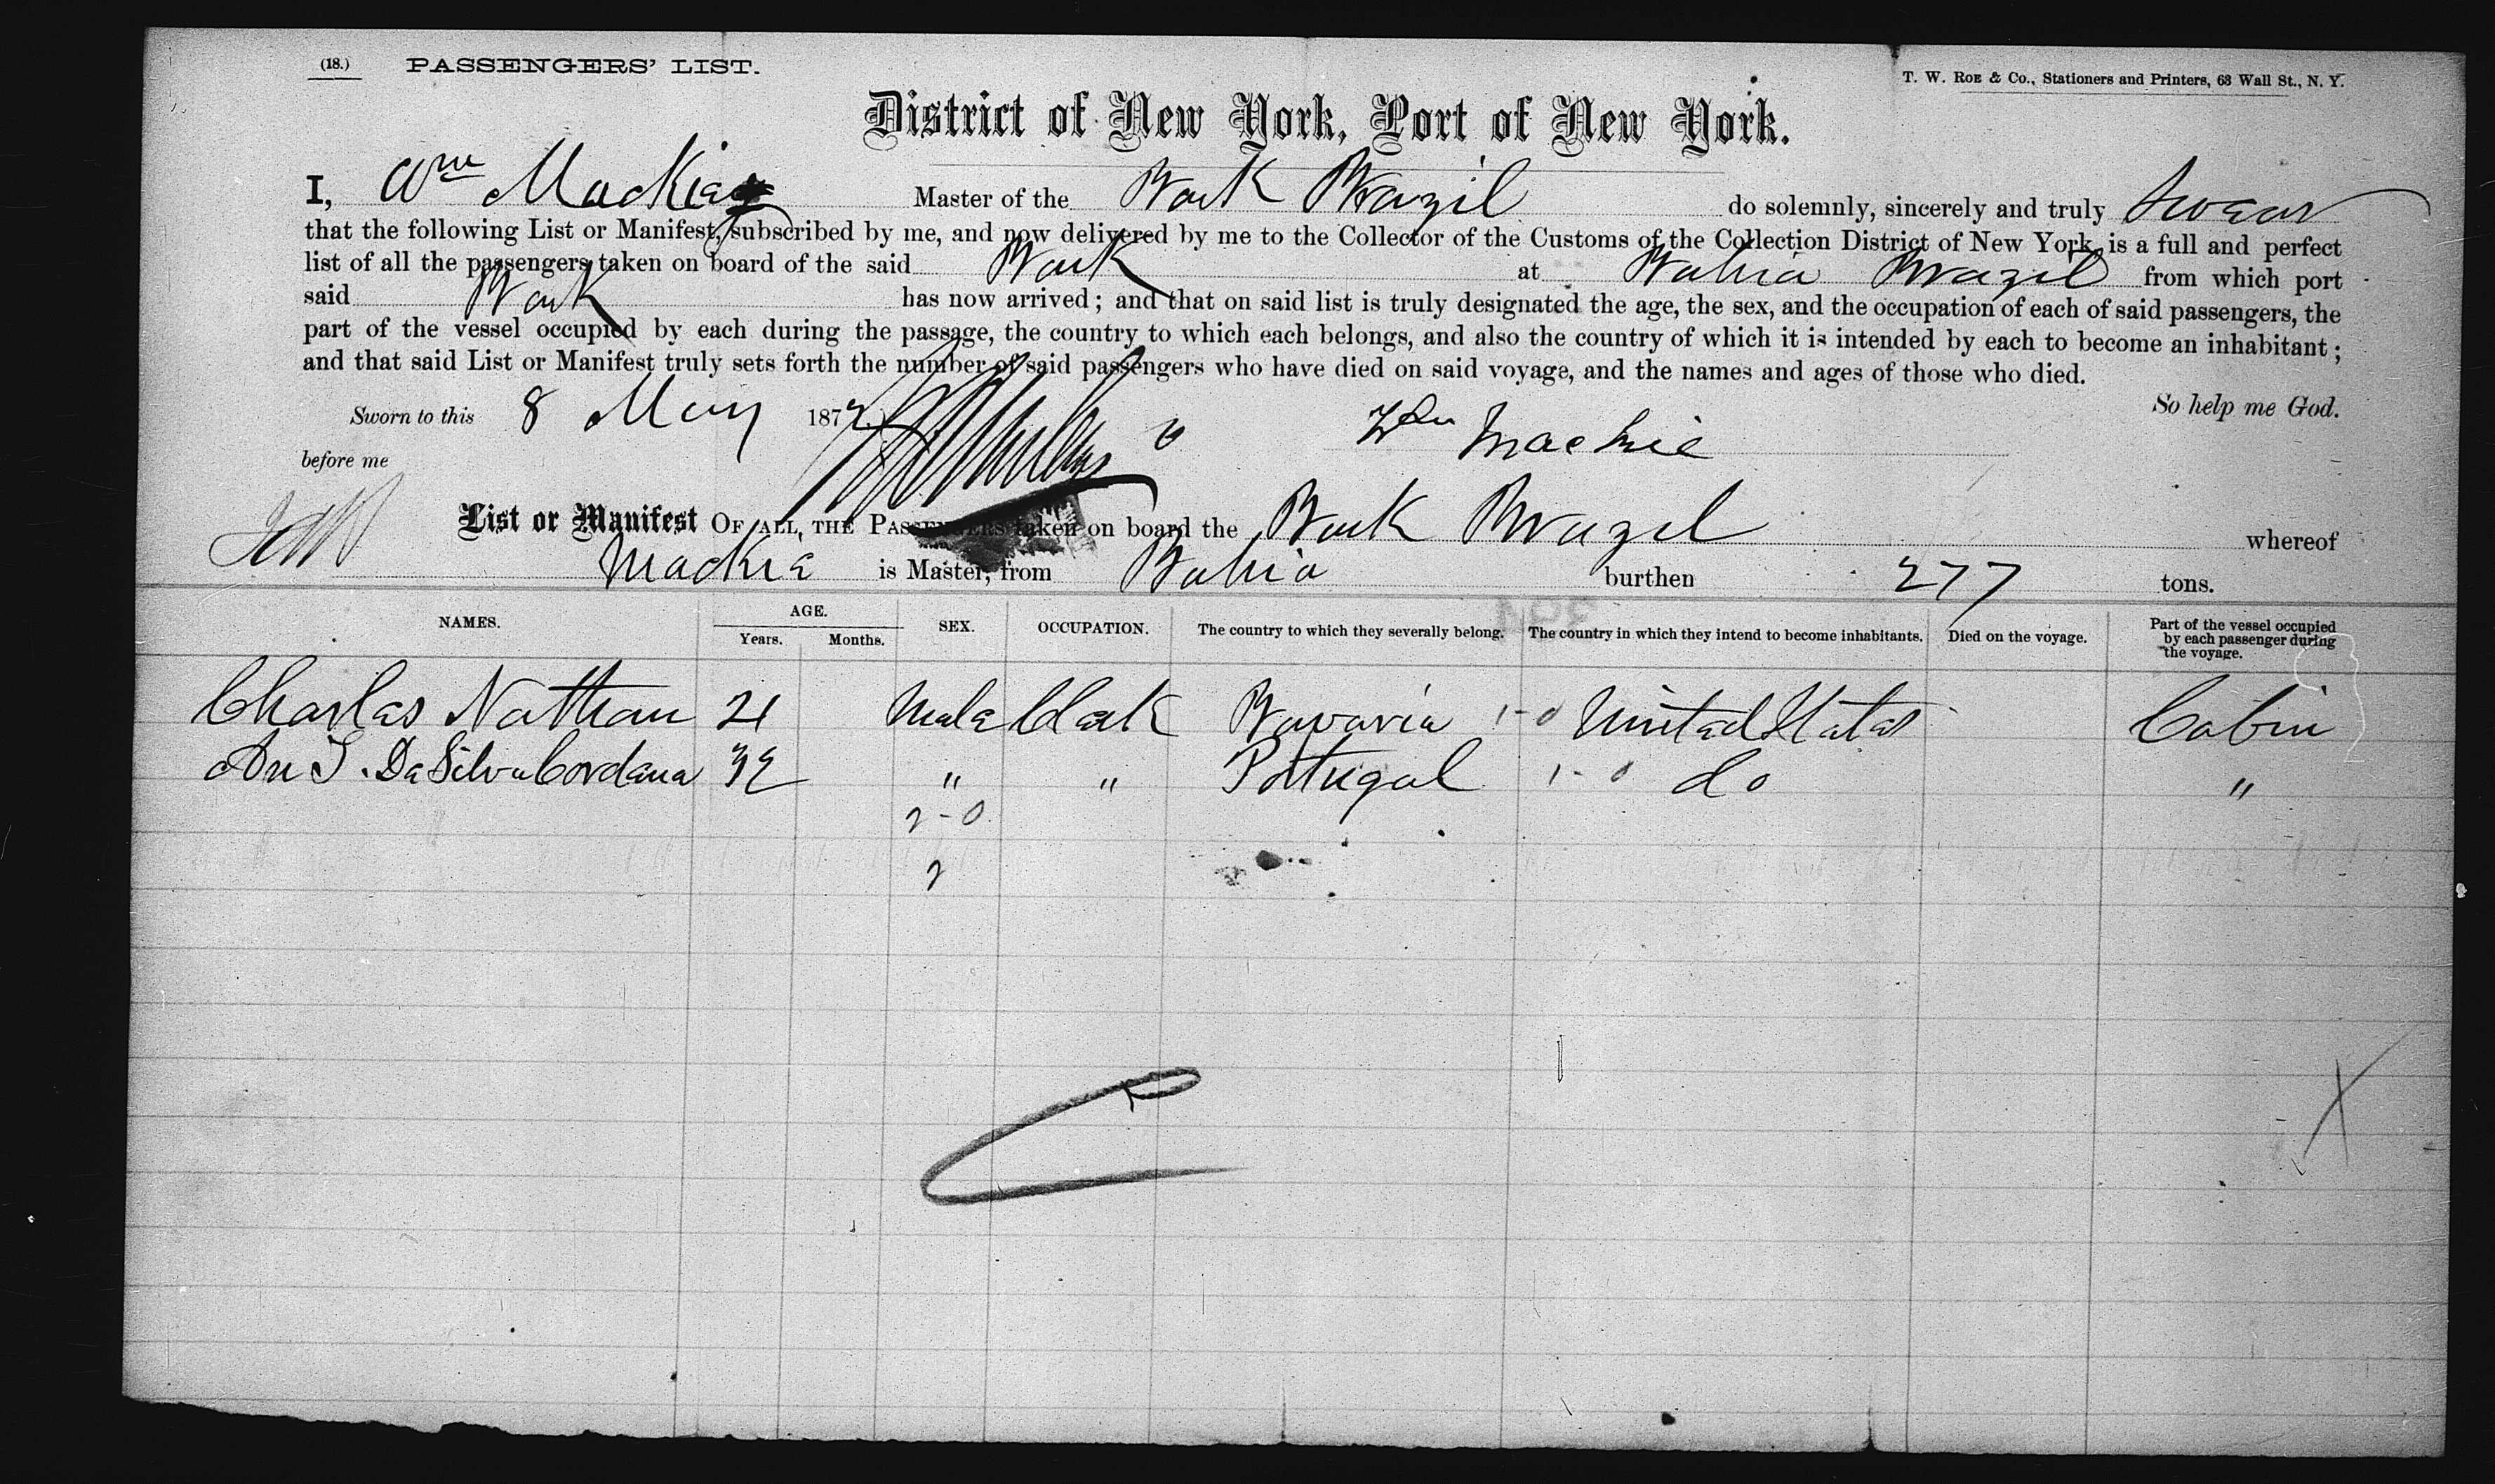 (18.) PASSENGERS' LIST.
T. W. Roe & Co., Stationers and Printers, 63 Wall St., N. Y.
District of New York, Port of New York.
I, Wm Mackie Master of the Bark Brazil do solemnly, sincerely and truly Swear
that the following List or Manifest, subscribed by me, and now delivered by me to the Collector of the Customs of the Collection District of New York, is a full and perfect
list of all the passengers taken on board of the said Bark at Bahia Brazil from which port
said Bark has now arrived; and that on said list is truly designated the age, the sex, and the occupation of each of said passengers, the
part of the vessel occupied by each during the passage, the country to which each belongs, and also the country of which it is intended by each to become an inhabitant;
and that said List or Manifest truly sets forth the number of said passengers who have died on said voyage, and the names and ages of those who died.
Sworn to this 8 May 1872 So help me God.
before me Wm Mackie
List or Manifest OF ALL, THE PASSENGERS taken on board the Bark Brazil whereof
Mackie is Master, from Bahia burthen 277 tons.
NAMES. AGE. Years. Months. SEX. OCCUPATION. The country to which they severally belong. The country in which they intend to become inhabitants. Died on the voyage. Part of the vessel occupied by each passenger during the voyage.
Charles Nathan 21 Male Clerk Bavaria 1-0 United States Cabin
S. Da Silva Cordana 32 " " Portugal 1-0 do "
2-0
2